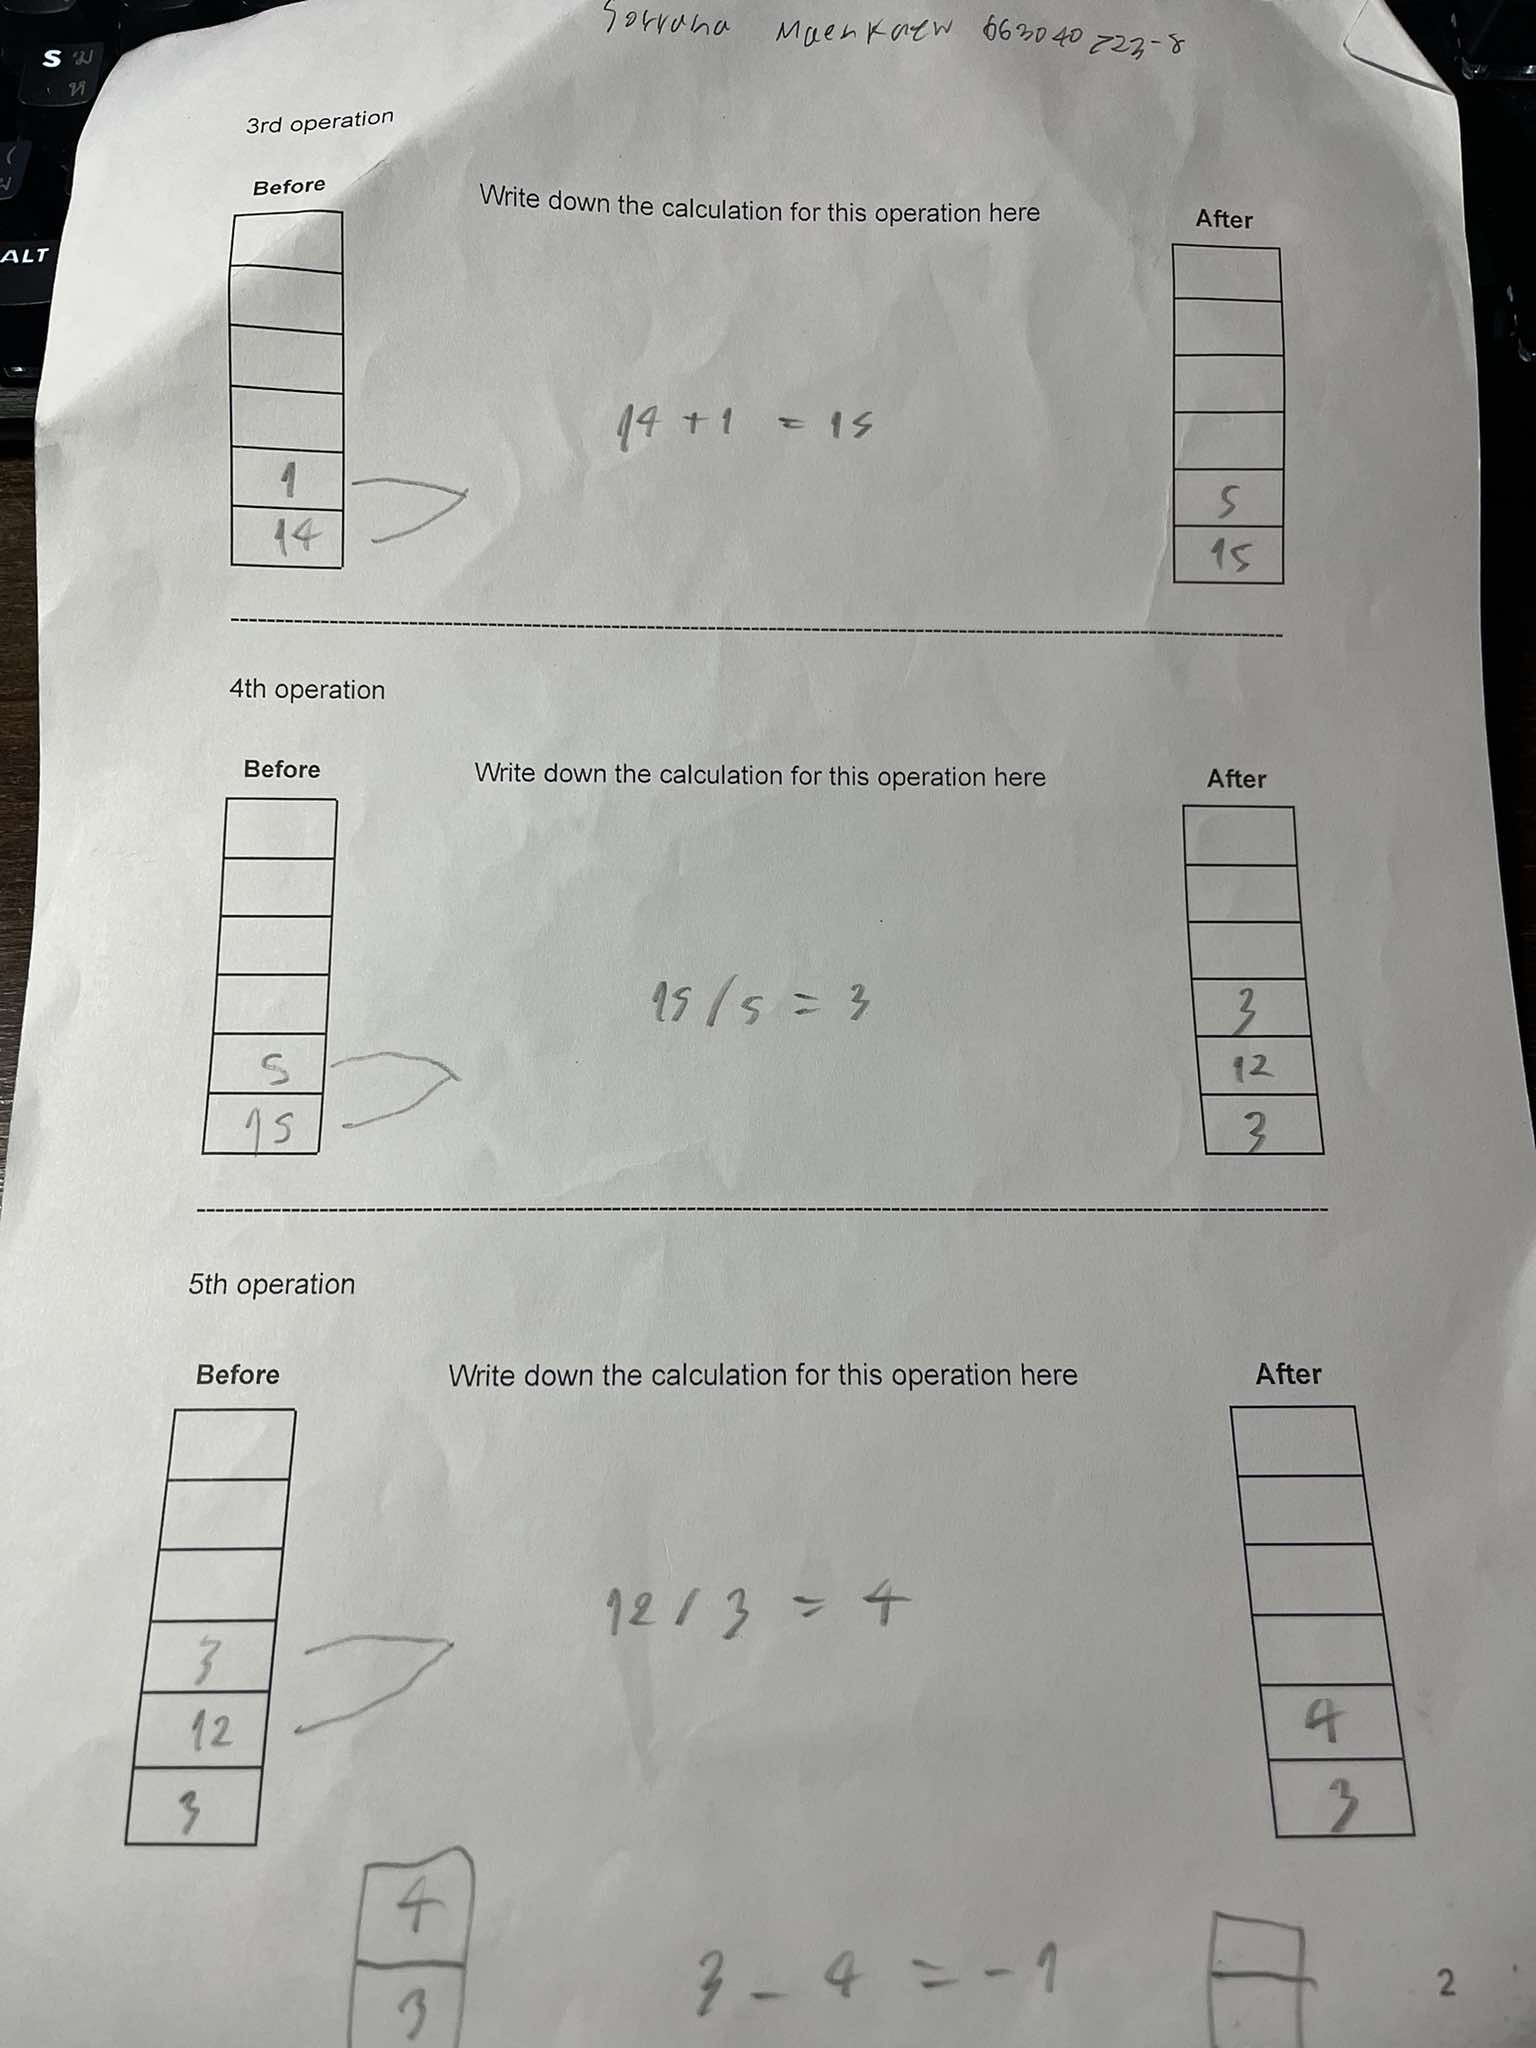 Sorrana Maenkaew 663040223-8
S ม
ห
ALT
3rd operation
Before
Write down the calculation for this operation here
After
1
14
14 + 1 = 15
5
15
4th operation
Before
Write down the calculation for this operation here
After
5
15
15 / 5 = 3
3
12
3
5th operation
Before
Write down the calculation for this operation here
After
3
12
3
12 / 3 = 4
4
3
4
3
3 - 4 = -1
2